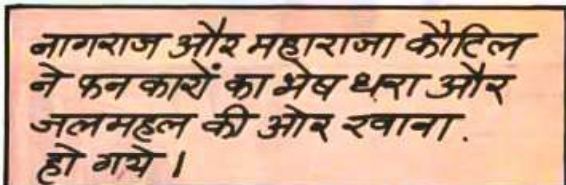 नागराज और महाराजा कौटिल
ने फनकारों का भेष धरा और
जलमहल की ओर रवाना.
हो गये।